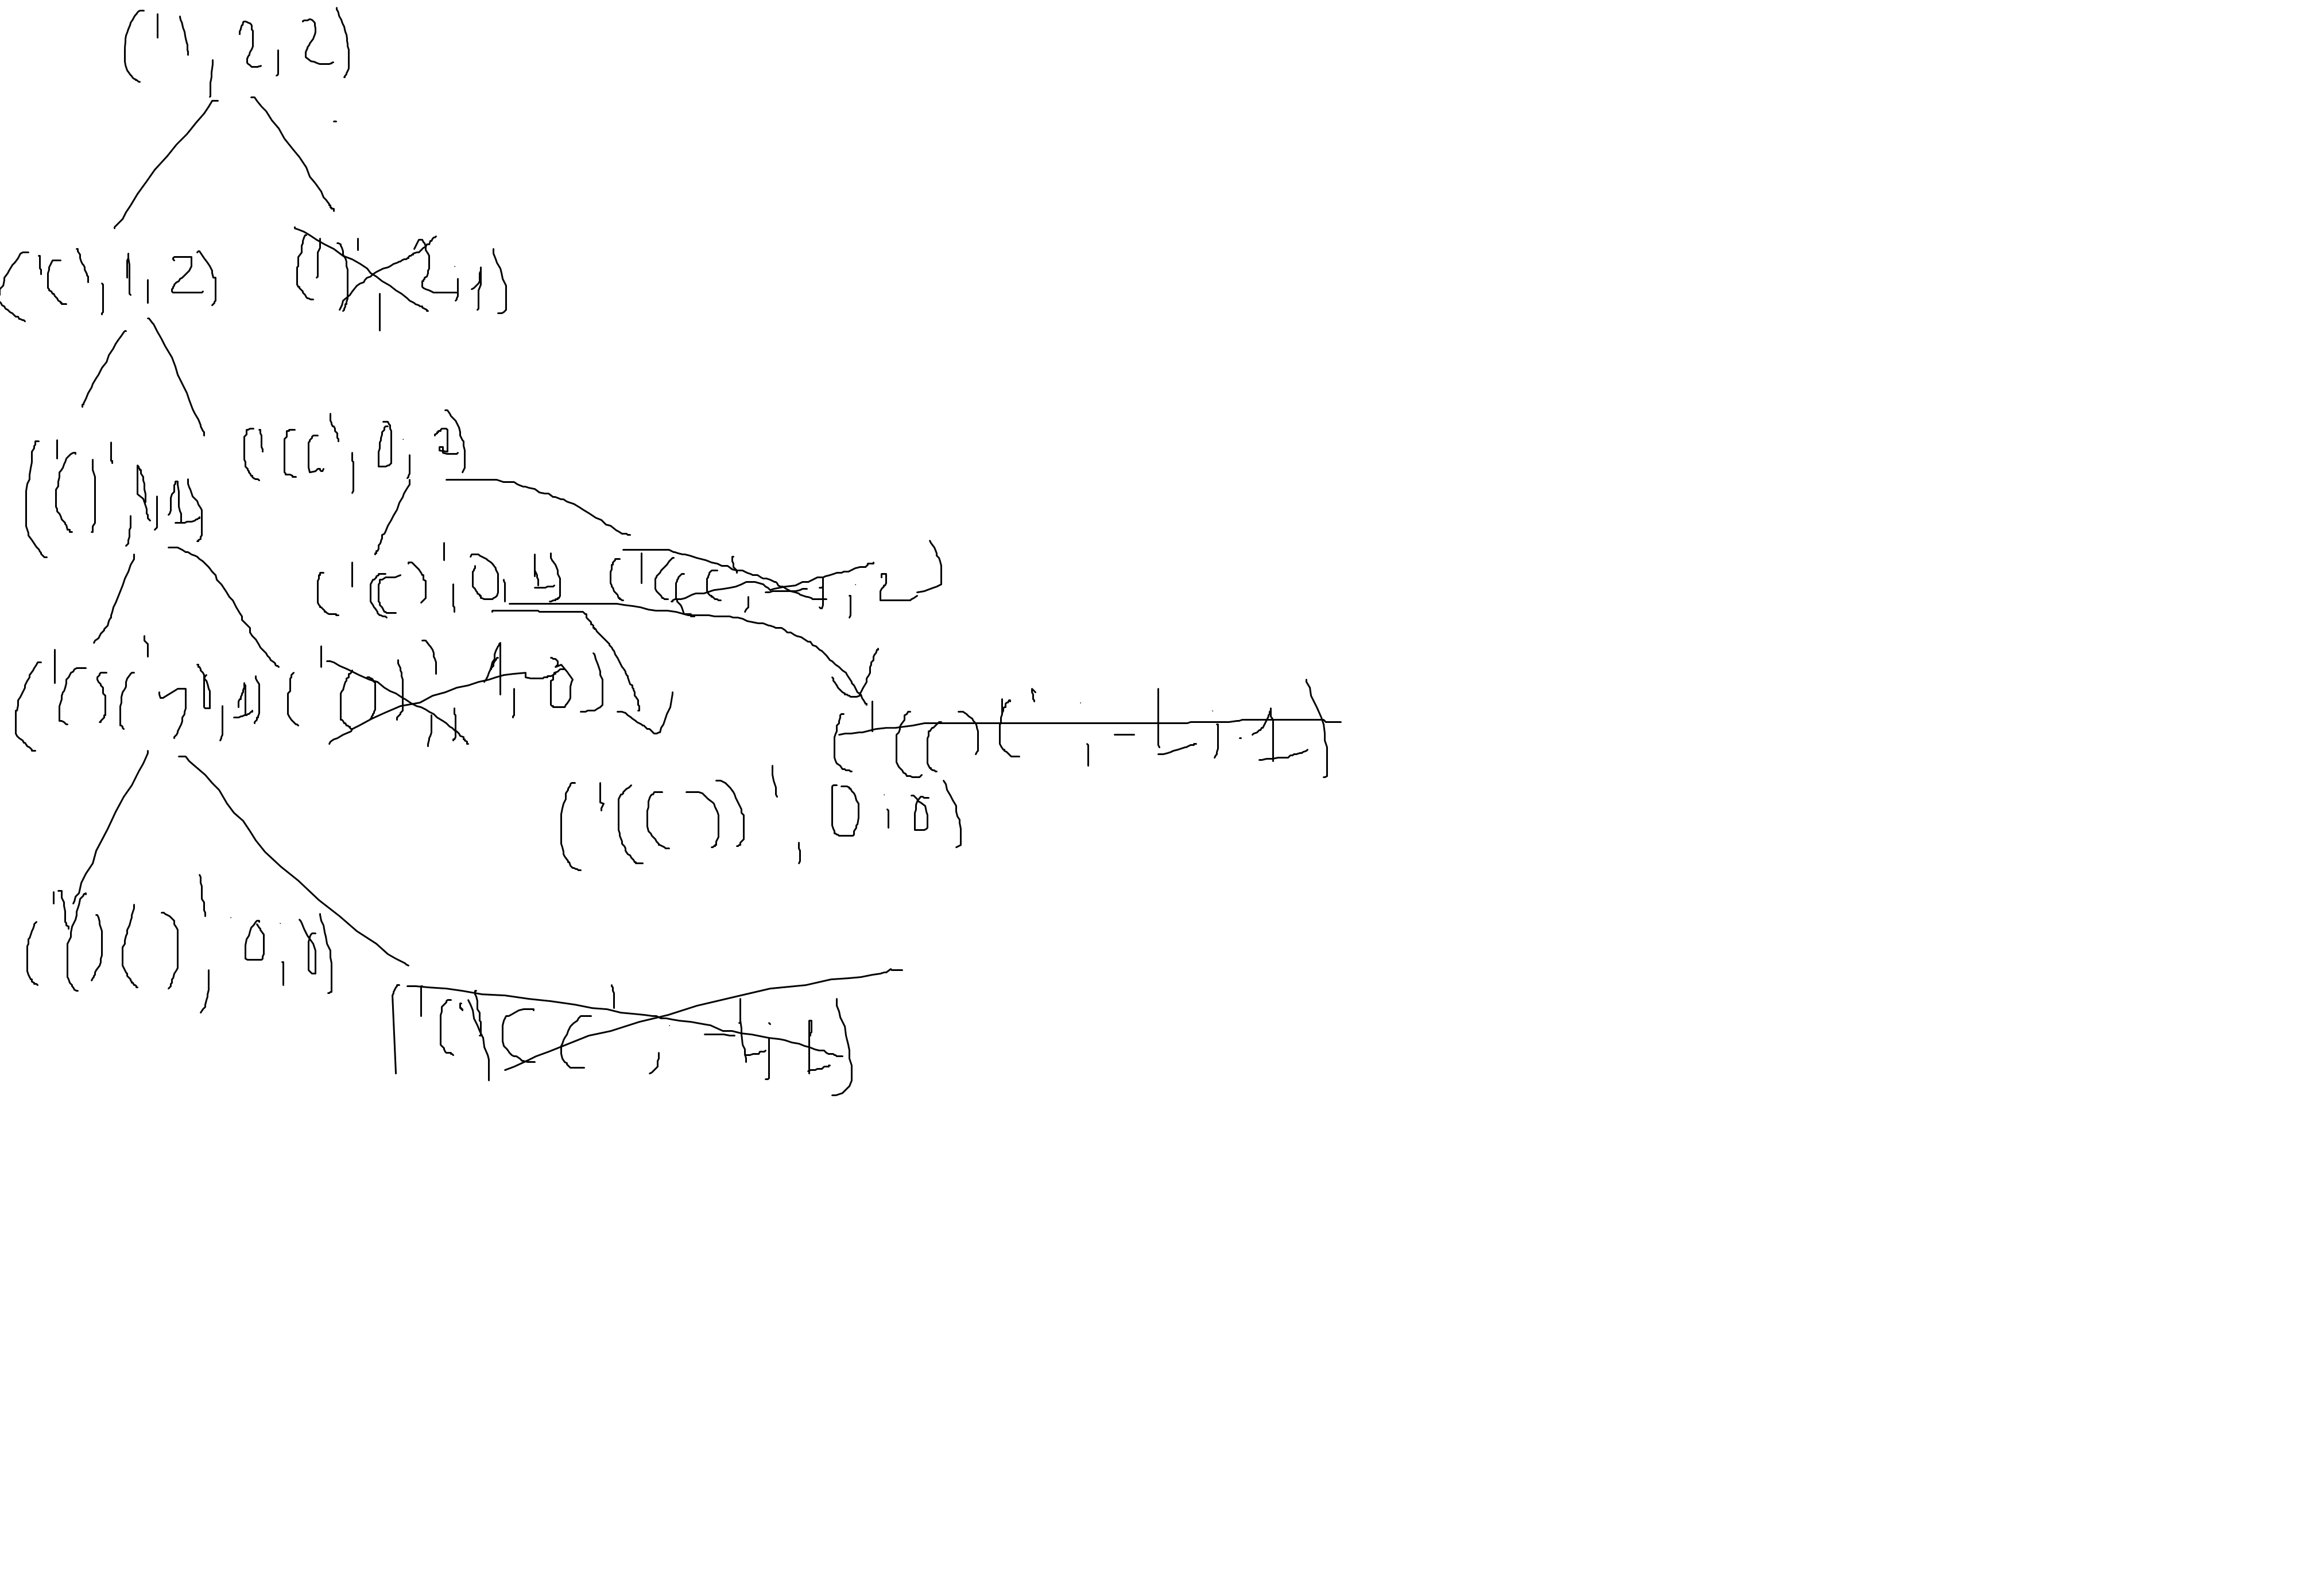 ('', 2, 2)
('(', 1, 2) (')', 2, 1)
('()', 1, 1) ('((', 0, 2)
('(()', 0, 1) ('(((', -1, 2)
('()(', 0, 1) ('())', 1, 0)
('(()(', -1, 1)
('(())', 0, 0)
('()()', 0, 0)
('()((', -1, 1)